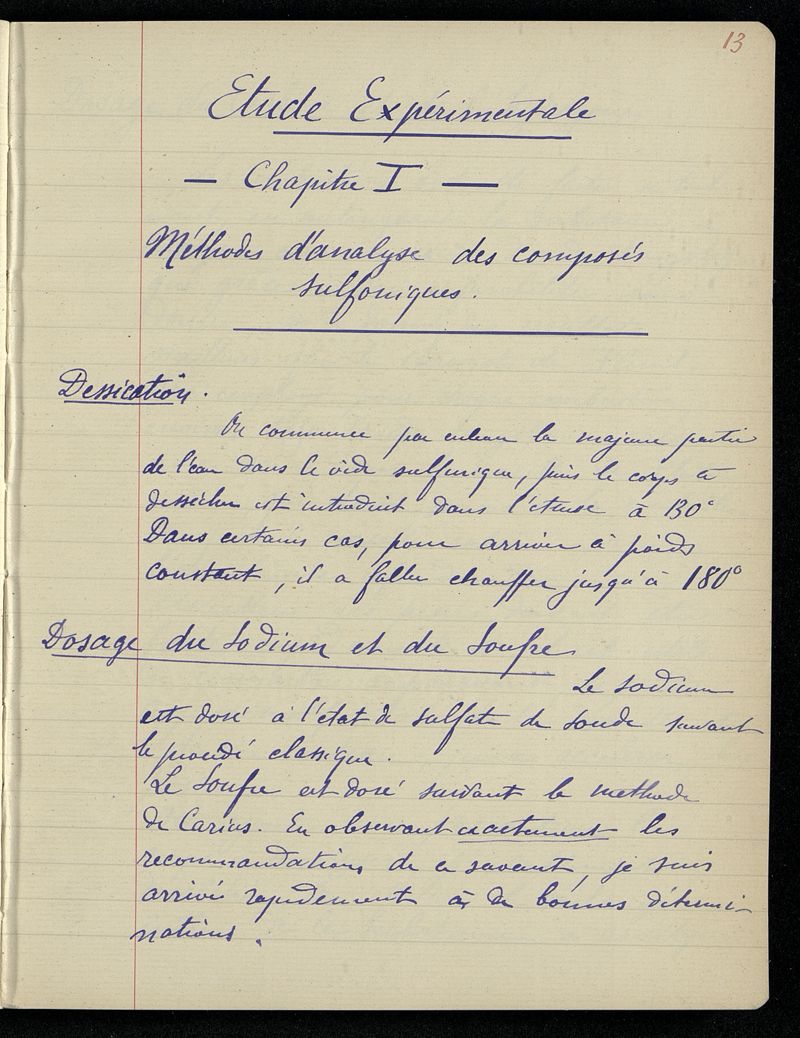 13
Etude Expérimentale
— Chapitre I —
Méthodes d'analyse des composés
sulfoniques.
Dessication.
On commence par enlever la majeure partie
de l'eau dans le vide sulfurique, puis le corps à
dessécher est introduit dans l'étuve à 130°
Dans certains cas, pour arriver à poids
constant, il a fallu chauffer jusqu'à 180°
Dosage du Sodium et du Soufre
Le sodium
est dosé à l'état de sulfate de soude suivant
le procédé classique.
Le Soufre est dosé suivant la méthode
de Carius. En observant exactement les
recommandations de ce savant, je suis
arrivé rapidement à de bonnes détermi-
nations.